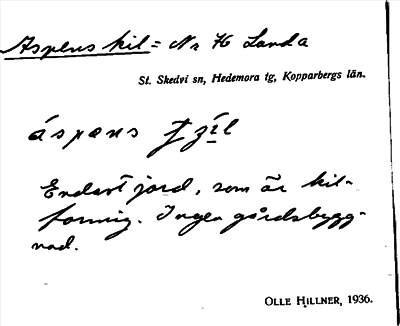 Aspens kil = Nr 16 Landa
St. Skedvi sn, Hedemora tg, Kopparbergs län.
áspæns
Endast jord, som är kil-
formig. Ingen gårdsbygg-
nad.
OLLE HILLNER, 1936.